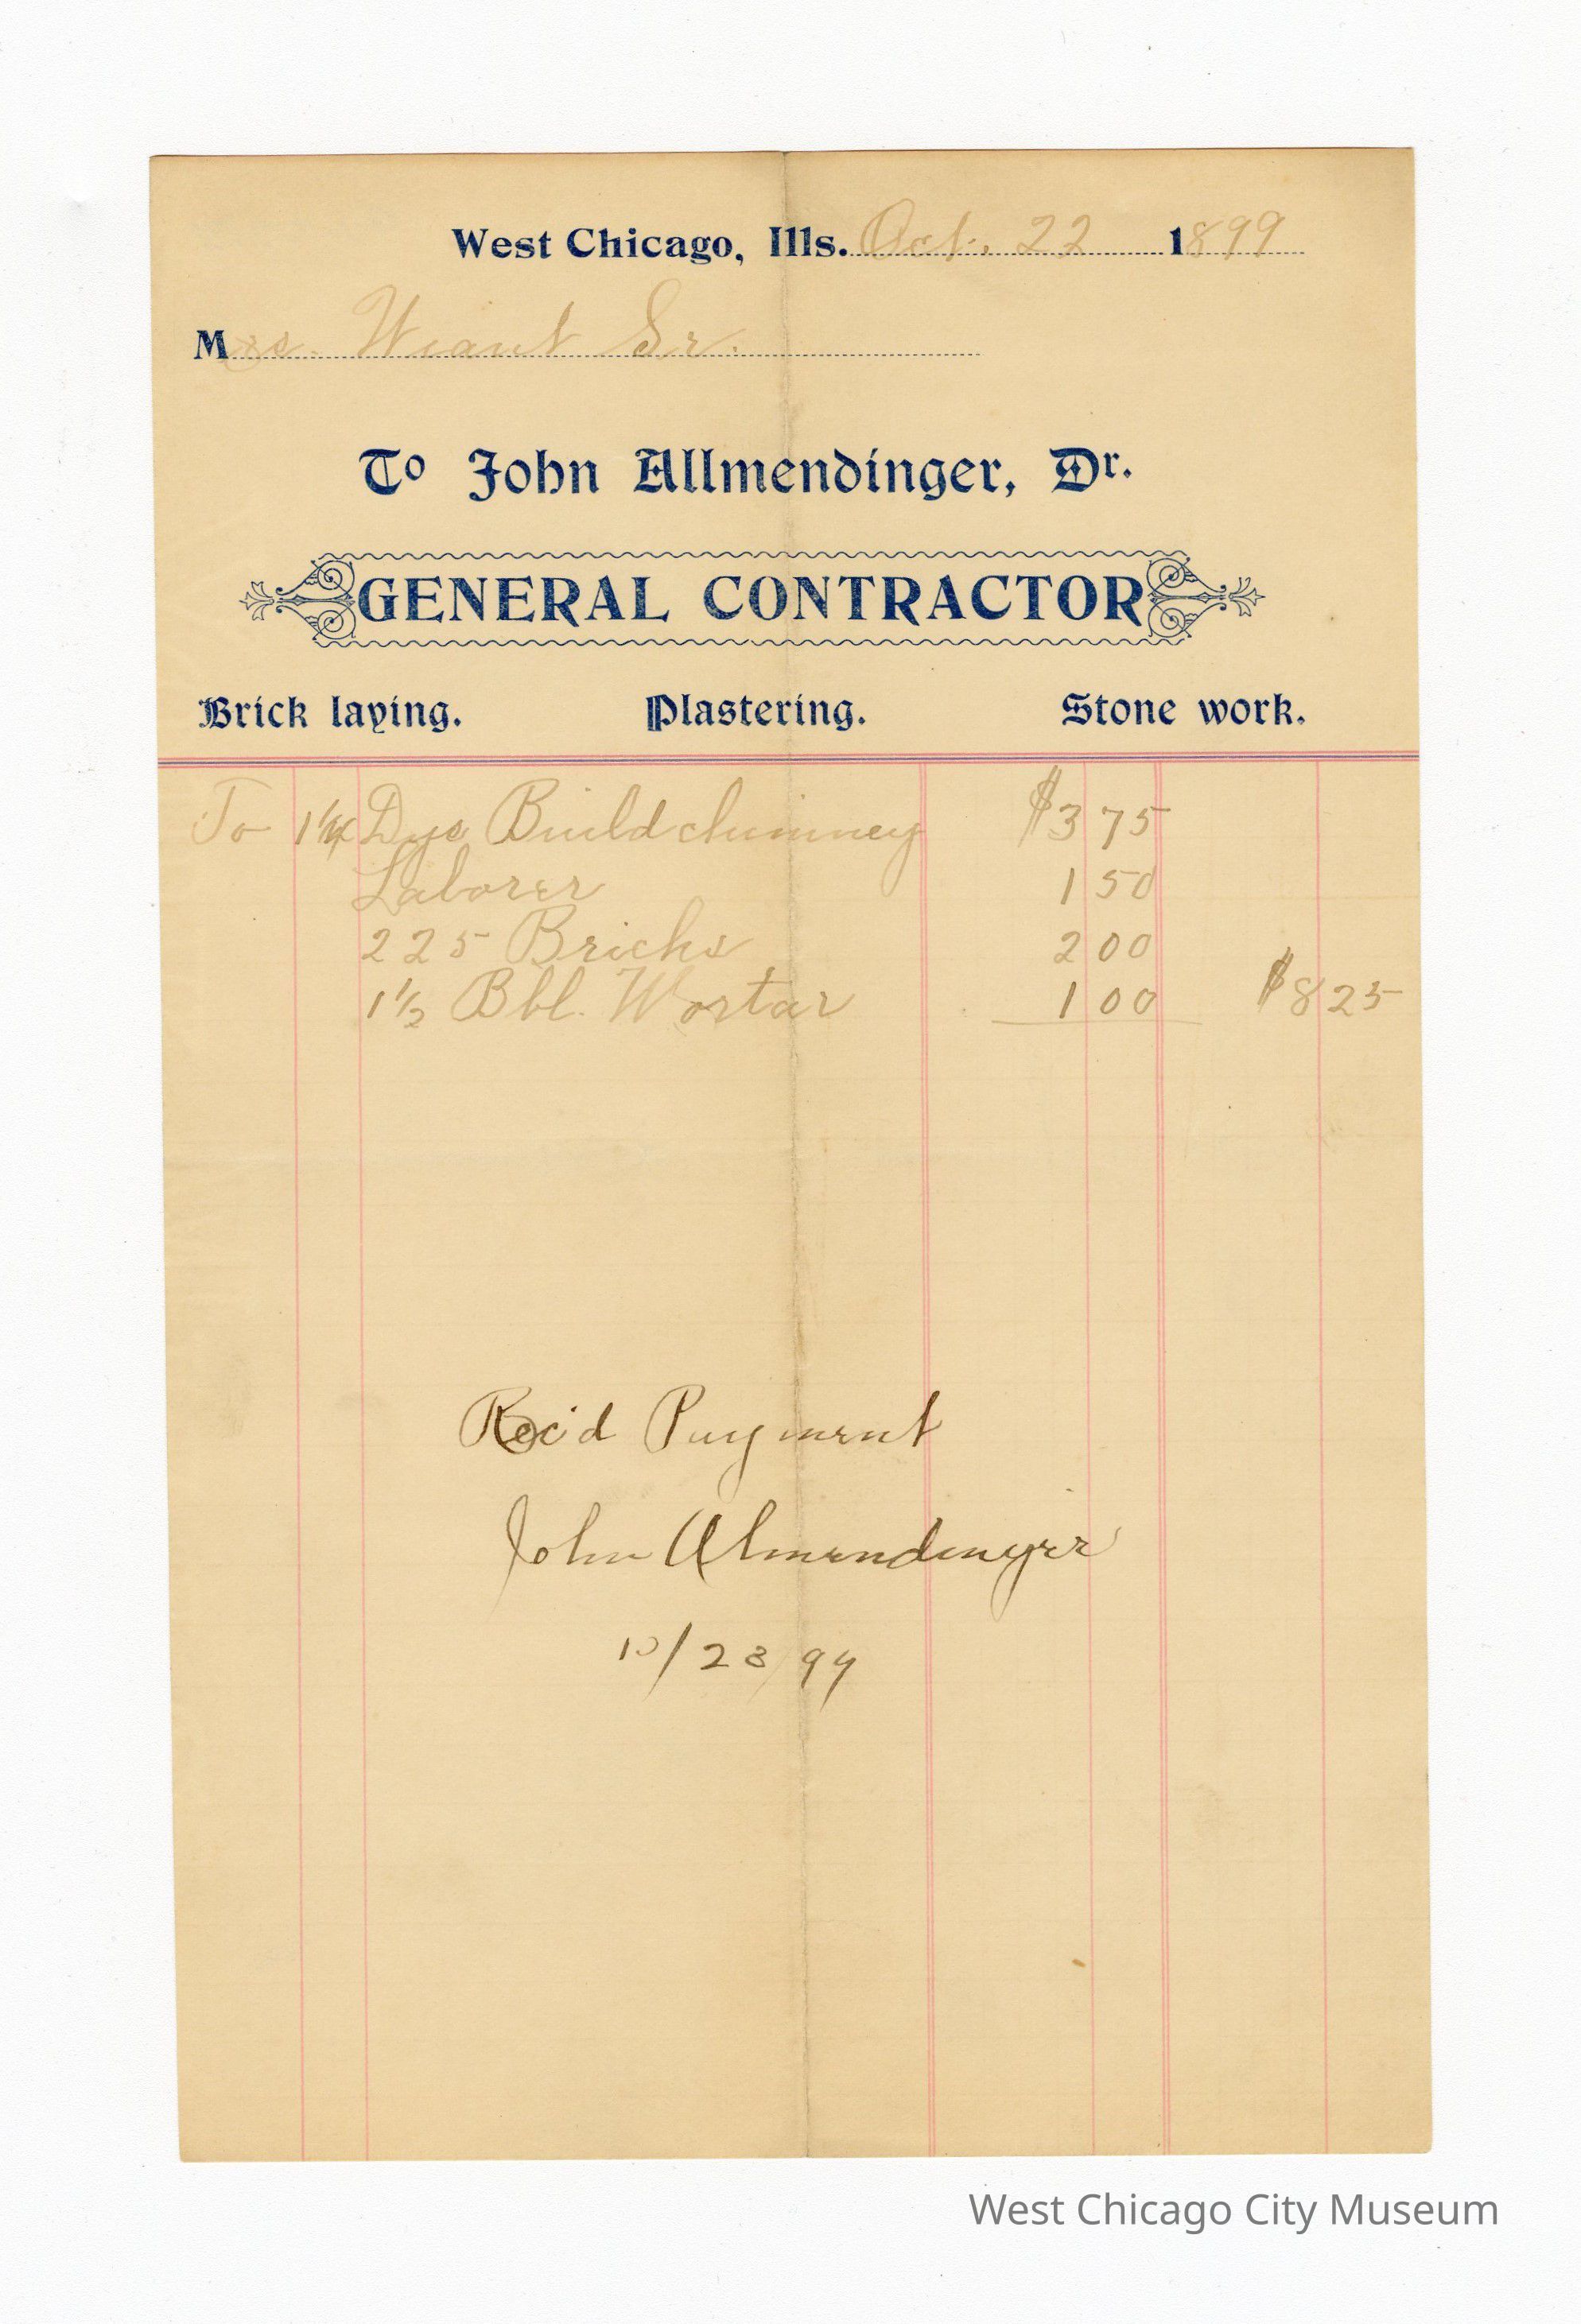 West Chicago, Ills. Oct. 22 1899
Mrs. Wiant Sr.
To John Allmendinger, Dr.
GENERAL CONTRACTOR
Brick laying. Plastering. Stone work.
To 1 1/4 Dys Build chimney $3 75
Laborer 1 50
225 Bricks 2 00
1 1/2 Bbl. Mortar 1 00 $8 25
Rec'd Payment
John Almendinger
10/23/99
West Chicago City Museum